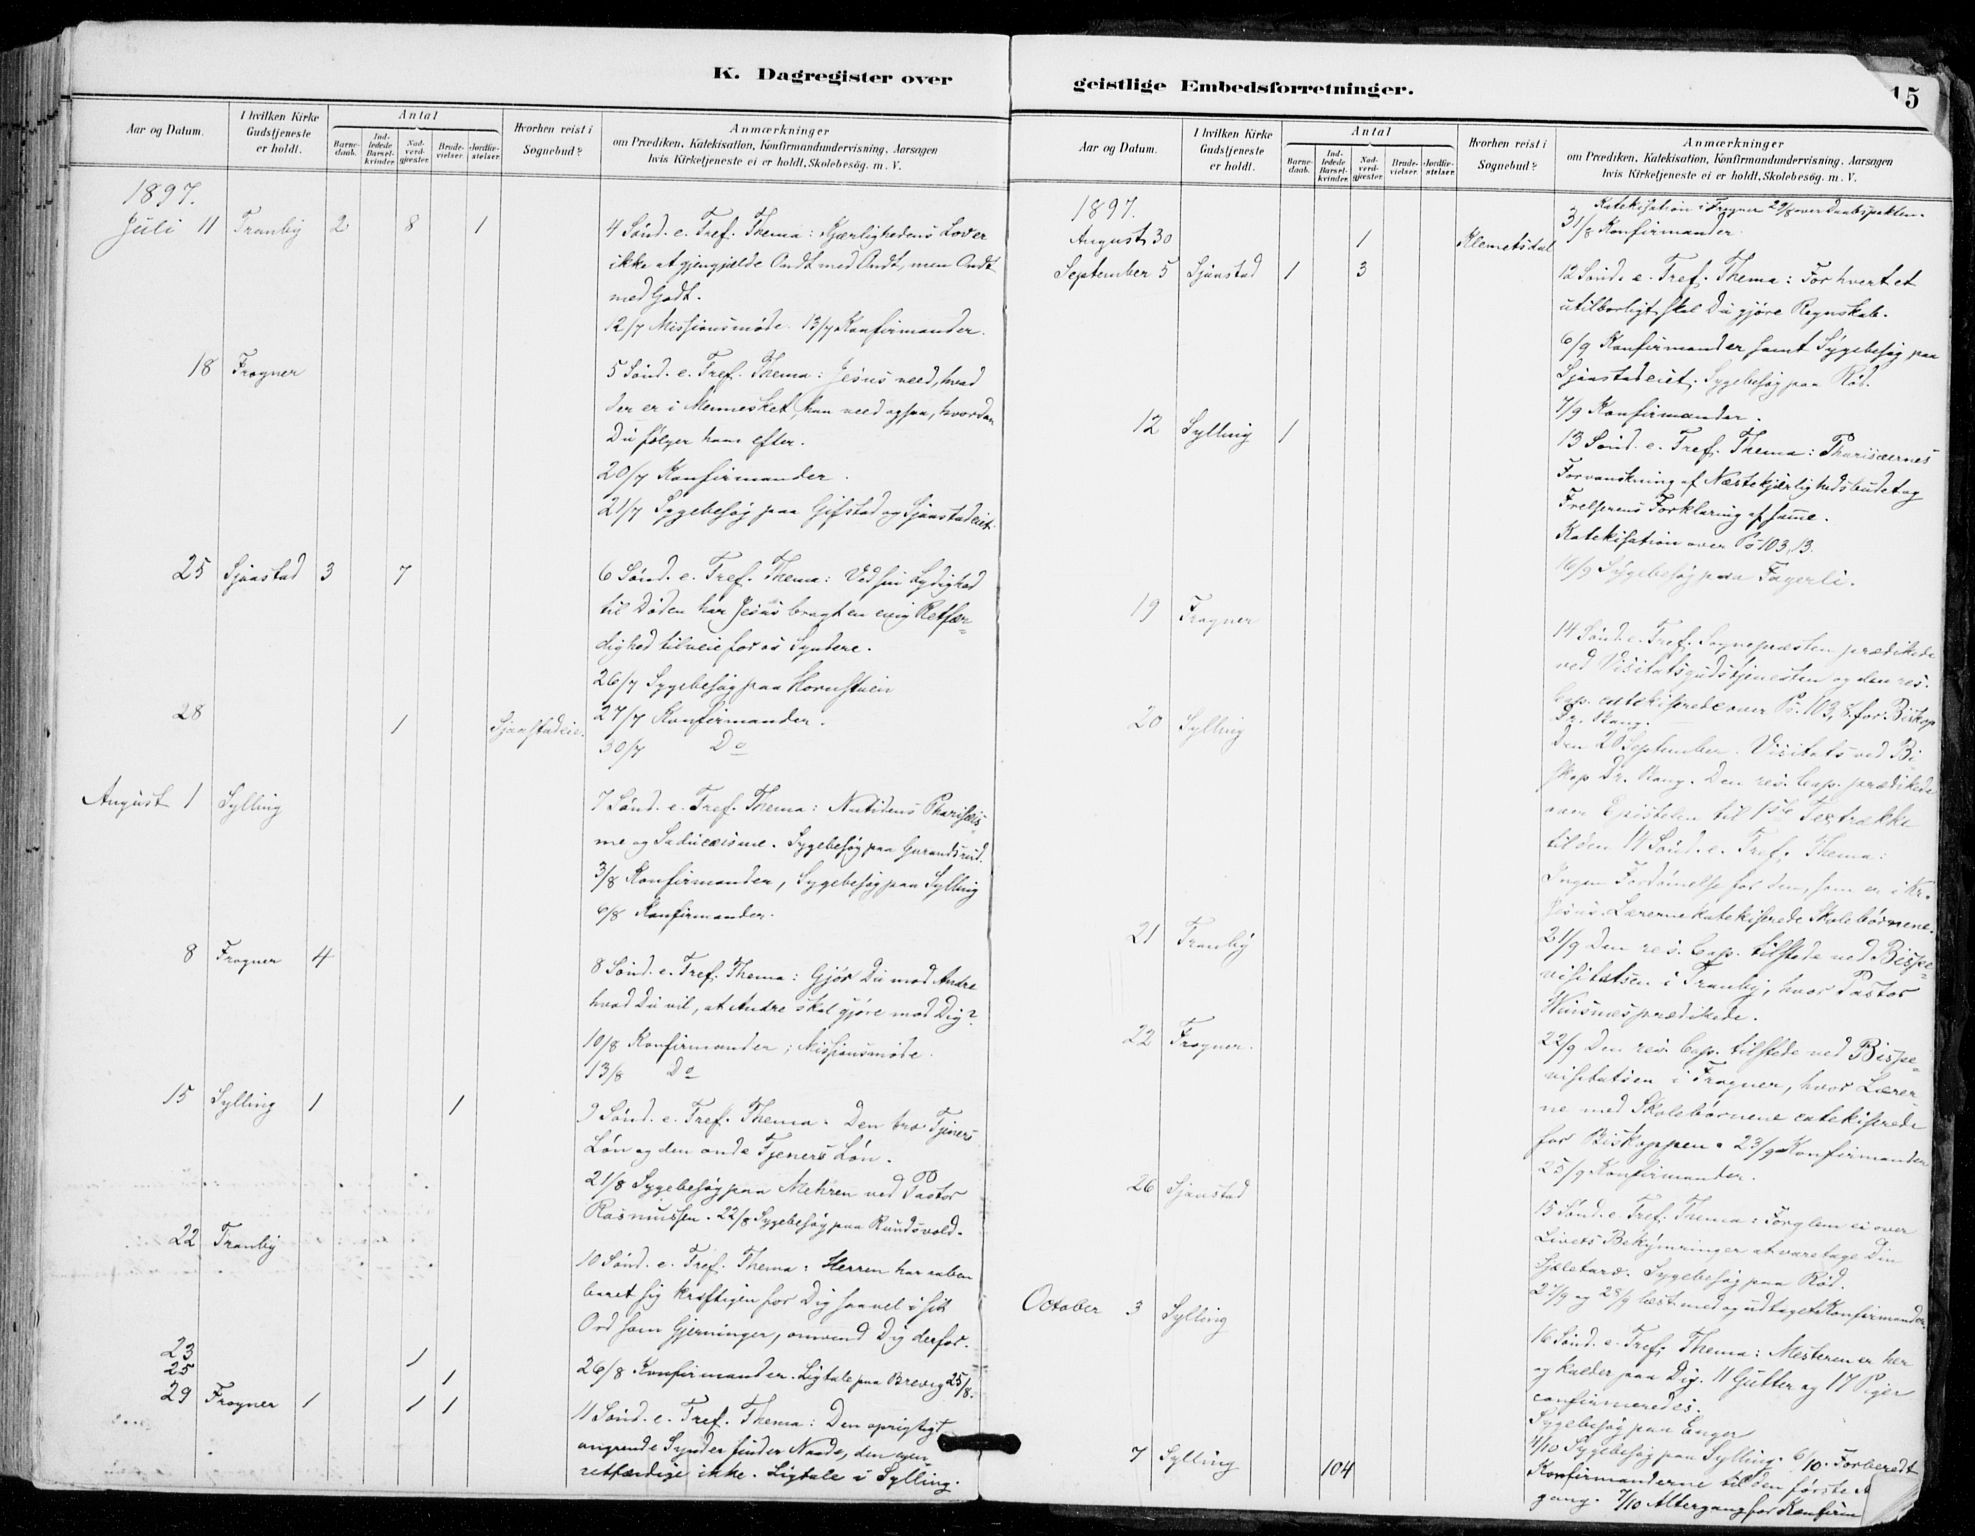 K. Dagregister over
Aar og Datum.
I hvilken Kirke Gudstjeneste er holdt.
Antal
Barnedaab.
Indledede Barselkvinder.
Nadverdgjester.
Brudevielser.
Jordfæstelser.
Hvorhen reist i Sognebud?
Anmærkninger
om Prædiken, Katekisation, Konfirmandundervisning, Aarsagen
hvis Kirketjeneste ei er holdt, Skolebesög. m. V.
1897.
Juli 11 Tranby 2 8 1 4 Sönd. e. Tref. Thema: Kjærlighedens Lov er
ikke at gjengjælde Ondt med Ondt, men Ondt
med Godt.
12/7 Missionsmöde. 13/7 Konfirmander.
18 Frogner 5 Sönd. e. Tref. Thema: Jesus veed, hvad
der er i Mennesket, han veed ogsaa, hvordan
Du følger ham efter.
20/7 Konfirmander.
21/7 Sygebesög paa Gifstad og Sjaastadeiet.
25 Sjaastad 3 7 6 Sönd. e. Tref. Thema: Ved sin Lydighed
til Döden har Jesus bragt en evig Retfær-
dighed tilveie for os Syndere.
26/7 Sygebesög paa Hornstuen
28 1 Sjaastadeie. 27/7 Konfirmander.
30/7 Do
August 1 Sylling 7 Sönd. e. Tref. Thema: Nutidens Pharisæis
me og Saducæisme. Sygebesög paa Gurandsrud.
3/8 Konfirmander, Sygebesög paa Sylling
6/8 Konfirmander.
8 Frogner 4 8 Sönd. e. Tref. Thema: Gjör Du mod Andre
hvad Du vil, at Andre skal gjöre mod Dig?
10/8 Konfirmander; Missionsmöde.
13/8 Do
15 Sylling 1 1 9 Sönd. e. Tref. Thema. Den tro Tjeners
Lön og den onde Tjeners Lön.
21/8 Sygebesög paa Mehren ved Pastor
Rasmussen. 22/8 Sygebesög paa Rundsvold.
22 Tranby 10 Sönd. e. Tref. Thema: Herren har aaben
baret sig kraftigen for Dig saavel i sit
Ord som Gjerninger, omvend Dig derfor.
23 1
25 1 26/8 Konfirmander. Ligtale paa Brevig 25/8.
29 Frogner 1 1 1 11 Sönd. e. Tref. Thema: Den oprigtigt
angrende Synder finder Naade, den egen
retfærdige ikke. Ligtale i Sylling.
geistlige Embedsforretninger.
15
Aar og Datum.
I hvilken Kirke Gudstjeneste er holdt.
Antal
Barnedaab.
Indledede Barselkvinder.
Nadverdgjester.
Brudevielser.
Jordfæstelser.
Hvorhen reist i Sognebud?
Anmærkninger
om Prædiken, Katekisation, Konfirmandundervisning, Aarsagen
hvis Kirketjeneste ei er holdt, Skolebesög. m. V.
1897.
Katekisation i Frogner 29/8 over Daabspakten.
August 30 1 Klemetsdal 31/8 Konfirmander.
September 5 Sjaastad 1 3 12 Sönd. e. Tref. Thema: For hvert et
utilbörligt skal Du gjöre Regnskab.
6/9 Konfirmander samt Sygebesög paa
Sjaastadeiet, Sygebesög paa Röd.
7/9 Konfirmander.
12 Sylling 1 13 Sönd. e. Tref. Thema: Pharisæernes
Forvanskning af Næstekjærlighedsbudet og
Frelserens Forklaring af samme.
Katekisation over Ps 103, 13.
16/9 Sygebesög paa Fagerli.
19 Frogner 14 Sönd. e. Tref. Sognepræsten prædikede
ved Visitatsgudstjenesten og den res.
Cap. catekiserede over Ps. 103, 8. for Biskop
Dr. Bang.
20 Sylling Den 20 September. Visitats ved Bi
skop Dr. Bang. Den res. Cap. prædikede
over Epistelen til 1ste Textrække
til den 14 Sönd. e. Tref. Thema:
Ingen Fordömelse for dem, som er i Kr.
Jesus. Lærerne katekiserede Skolebörnene.
21 Tranby 21/9 Den res. Cap. tilstede ved Bispe-
visitatsen i Tranby, hvor Pastor
prædikede.
22 Frogner. 22/9 Den res. Cap. tilstede ved Bispe-
visitatsen i Frogner, hvor Lærer-
ne med Skolebörnene catekiserede
for Biskoppen. 23/9 Konfirmander
25/9 Konfirmander.
26 Sjaastad 15 Sönd. e. Tref. Thema: Forglem ei over
Livets Bekymringer at varetage Din
Sjæletarv. Sygebesög paa Röd.
27/9 og 28/9 læst med og udtaget Konfirmander.
October 3 Sylling 16 Sönd. e. Tref. Thema: Mesteren er her
og kalder paa Dig. 11 Gutter og 17 Piger
confirmeredes.
Sygebesög paa Enger
4/10 Sygebesög paa Sylling. 6/10. Forberedt
7 Sylling 104 Konfirmanderne til den förste
gang. 7/10 Altergang for Konfirm